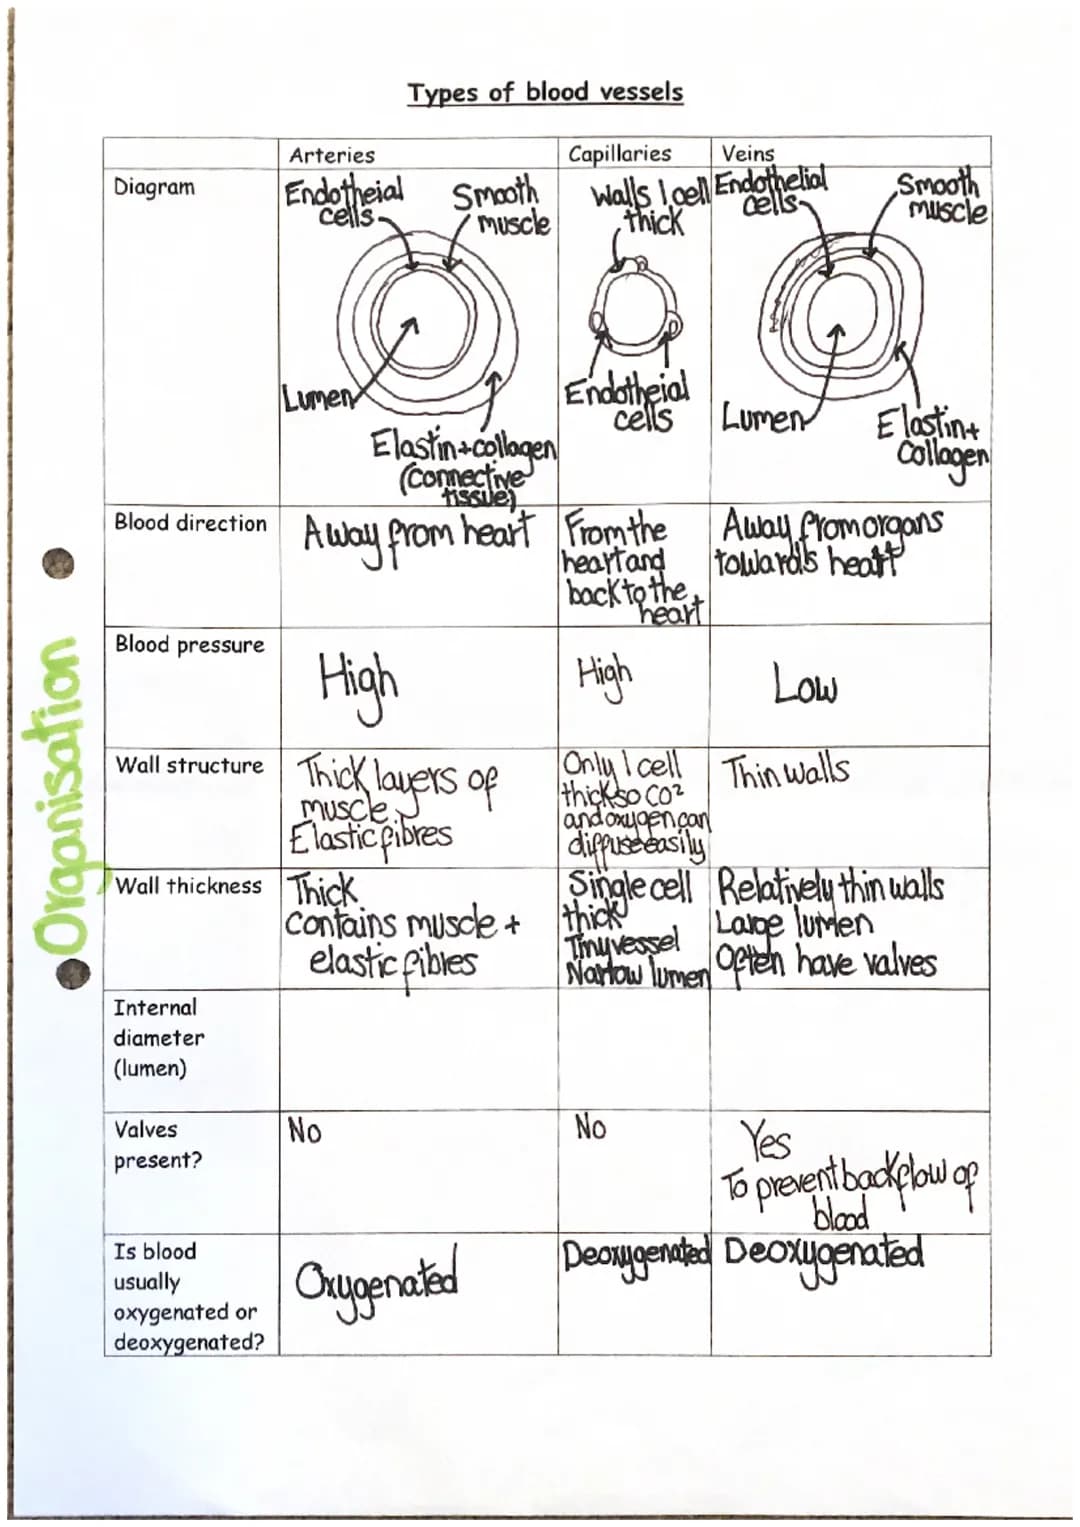 Types of blood vessels
Arteries
Capillaries
Veins
Diagram
Endotheial
cells
Smooth
muscle
Lumen
Elastin+collagen
(Connective
tissue)
Walls 1 cell
thick
Endotheial
cells
Endothelial
cells
Smooth
muscle
Lumen
Elastin+
Collagen
Blood direction
Away from heart
From the
heart and
back to the
heart
Away from organs
towards heart
Blood pressure
High
High
Low
Wall structure
Thick layers of
muscle
Elastic fibres
Only 1 cell
thick so CO²
and oxygen can
diffuse easily
Thin walls
Wall thickness
Thick
Contains muscle +
elastic fibres
Single cell
thick
Tiny vessel
Narrow lumen
Relatively thin walls
Large lumen
Often have valves
Internal
diameter
(lumen)
Valves
present?
No
No
Yes
To prevent backflow of
blood
Is blood
usually
oxygenated or
deoxygenated?
Oxygenated
Deoxygenated
Deoxygenated
Organisation